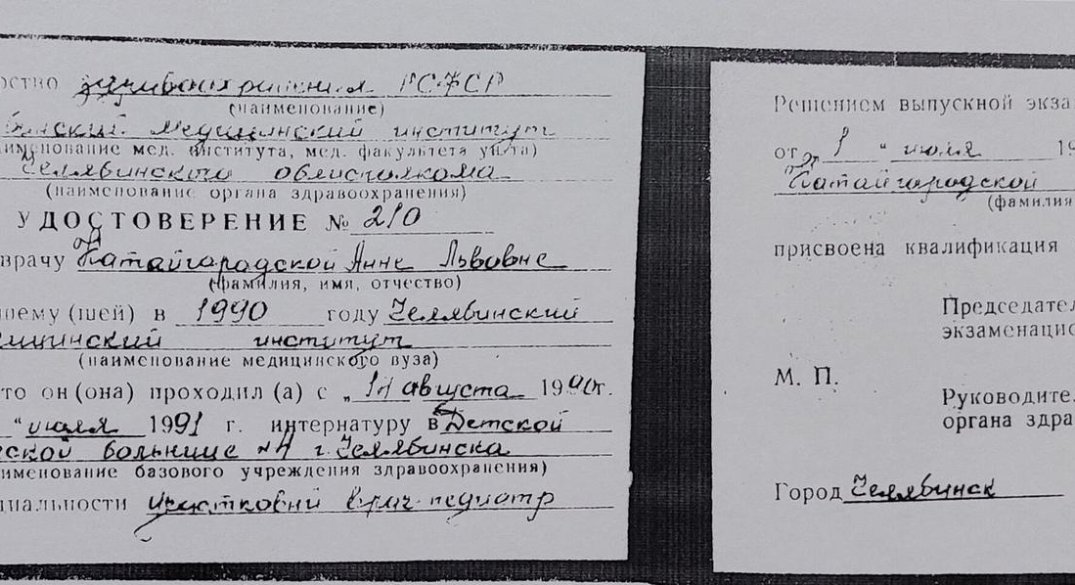 рство здравоохранения РСФСР
(наименование)
бинский медицинский институт
именование мед. института, мед. факультета ун-та)
Челябинского облисполкома
(наименование органа здравоохранения)
УДОСТОВЕРЕНИЕ № 210
врачу Китайгородской Анне Львовне
(фамилия, имя, отчество)
шему (шей) в 1990 году Челябинский
ицинский институт
(наименование медицинского вуза)
то он (она) проходил (а) с „ августа 1990г.
“ июля 1991 г. интернатуру в Детской
ской больнице г. Челябинска
именование базового учреждения здравоохранения)
циальности участковый врач-педиатр
Решением выпускной экза
от „ 1 “ июля 19
Китайгородской
(фамилия
присвоена квалификация
Председател
экзаменацио
М. П.
Руководите
органа здра
Город Челябинск